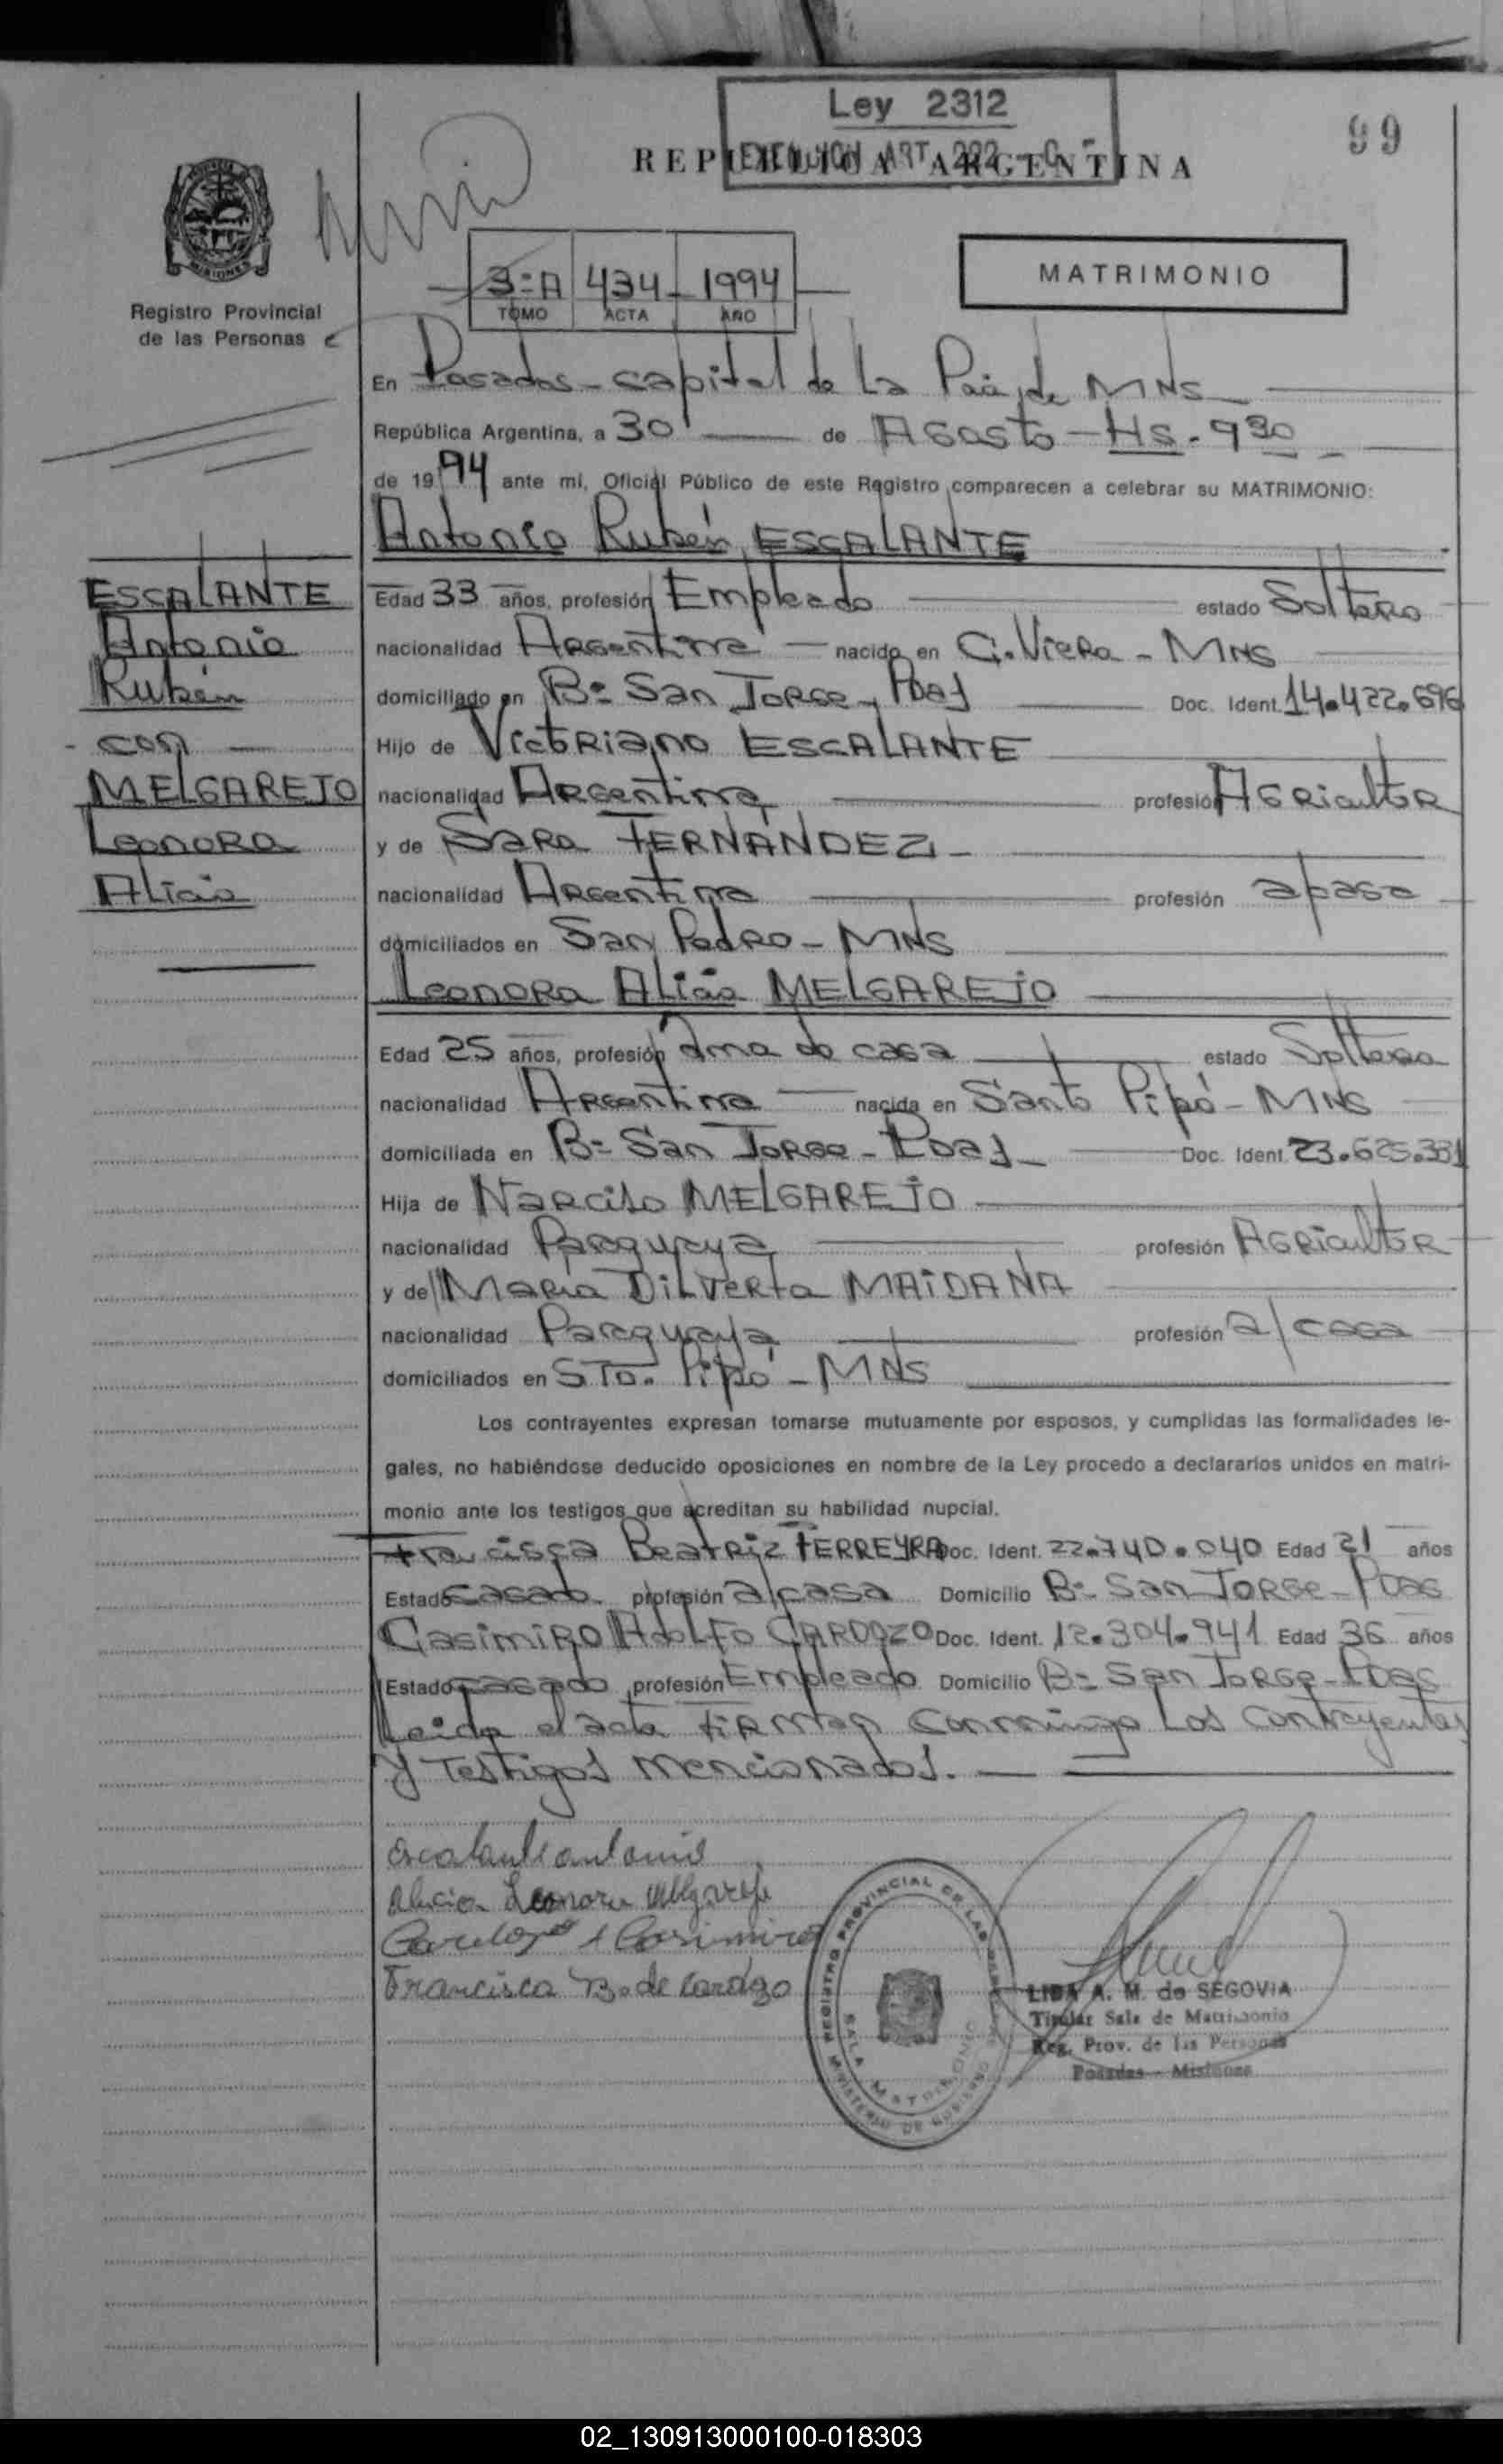 Ley 2312
99
REPUBLICA ARGENTINA
EXENCION ART. 222
MISIONES
Registro Provincial
de las Personas
3=A 434 1994
TOMO ACTA AÑO
MATRIMONIO
En Posadas - capital de La Pcia, de MNS
República Argentina, a 30 de Agosto - Hs. 930
de 1994 ante mí, Oficial Público de este Registro comparecen a celebrar su MATRIMONIO:
Antonio Rubén ESCALANTE
ESCALANTE
Antonio
Rubén
con
MELGAREJO
Leonora
Alicia
Edad 33 años, profesión Empleado estado Soltero
nacionalidad Argentina nacido en C. Viera - MNS
domiciliado en B= San Jorge - Pdas Doc. Ident. 14.422.696
Hijo de Victoriano ESCALANTE
nacionalidad Argentina profesión Agricultor
y de Sara FERNANDEZ -
nacionalidad Argentina profesión a/casa
domiciliados en San Pedro - MNS
Leonora Alicia MELGAREJO
Edad 25 años, profesión Ama de casa estado Soltera
nacionalidad Argentina nacida en Santo Pipó - MNS
domiciliada en B= San Jorge - Pdas - Doc. Ident. 23.625.331
Hija de Narciso MELGAREJO
nacionalidad Paraguaya profesión Agricultor
y de Maria Dilverta MAIDANA
nacionalidad Paraguaya profesión a/casa
domiciliados en STO. Pipó - MNS
Los contrayentes expresan tomarse mutuamente por esposos, y cumplidas las formalidades le-
gales, no habiéndose deducido oposiciones en nombre de la Ley procedo a declararlos unidos en matri-
monio ante los testigos que acreditan su habilidad nupcial.
Francisca Beatriz FERREYRA Doc. Ident. 22.740.040 Edad 21 años
Estado casada profesión a/casa Domicilio B= San Jorge - Pdas
Casimiro Adolfo CARDOZO Doc. Ident. 12.304.941 Edad 36 años
Estado casado profesión Empleado Domicilio B= San Jorge - Pdas
Leida el acta firman conmingo Los contrayentes
y Testigos mencionados. -
Escalante antonio
Alicia Leonora Melgarejo
Cardozo A Casimiro
Francisca B. de Cardozo
REGISTRO PROVINCIAL DE LAS PERSONAS
SALA MATRIMONIO
MINISTERIO DE GOBIERNO
LIDA A. M. de SEGOVIA
Titular Sala de Matrimonio
Reg. Prov. de las Personas
Posadas - Misiones
02_130913000100-018303